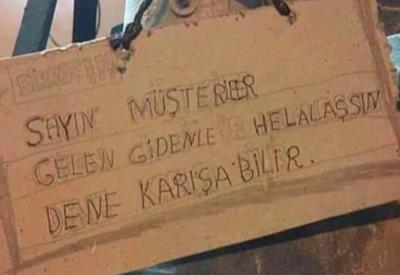 DİKKAT!!!
SAYIN MÜŞTERİLER
GELEN GİDENLE HELALAŞSIN
DENE KARIŞA BİLİR.